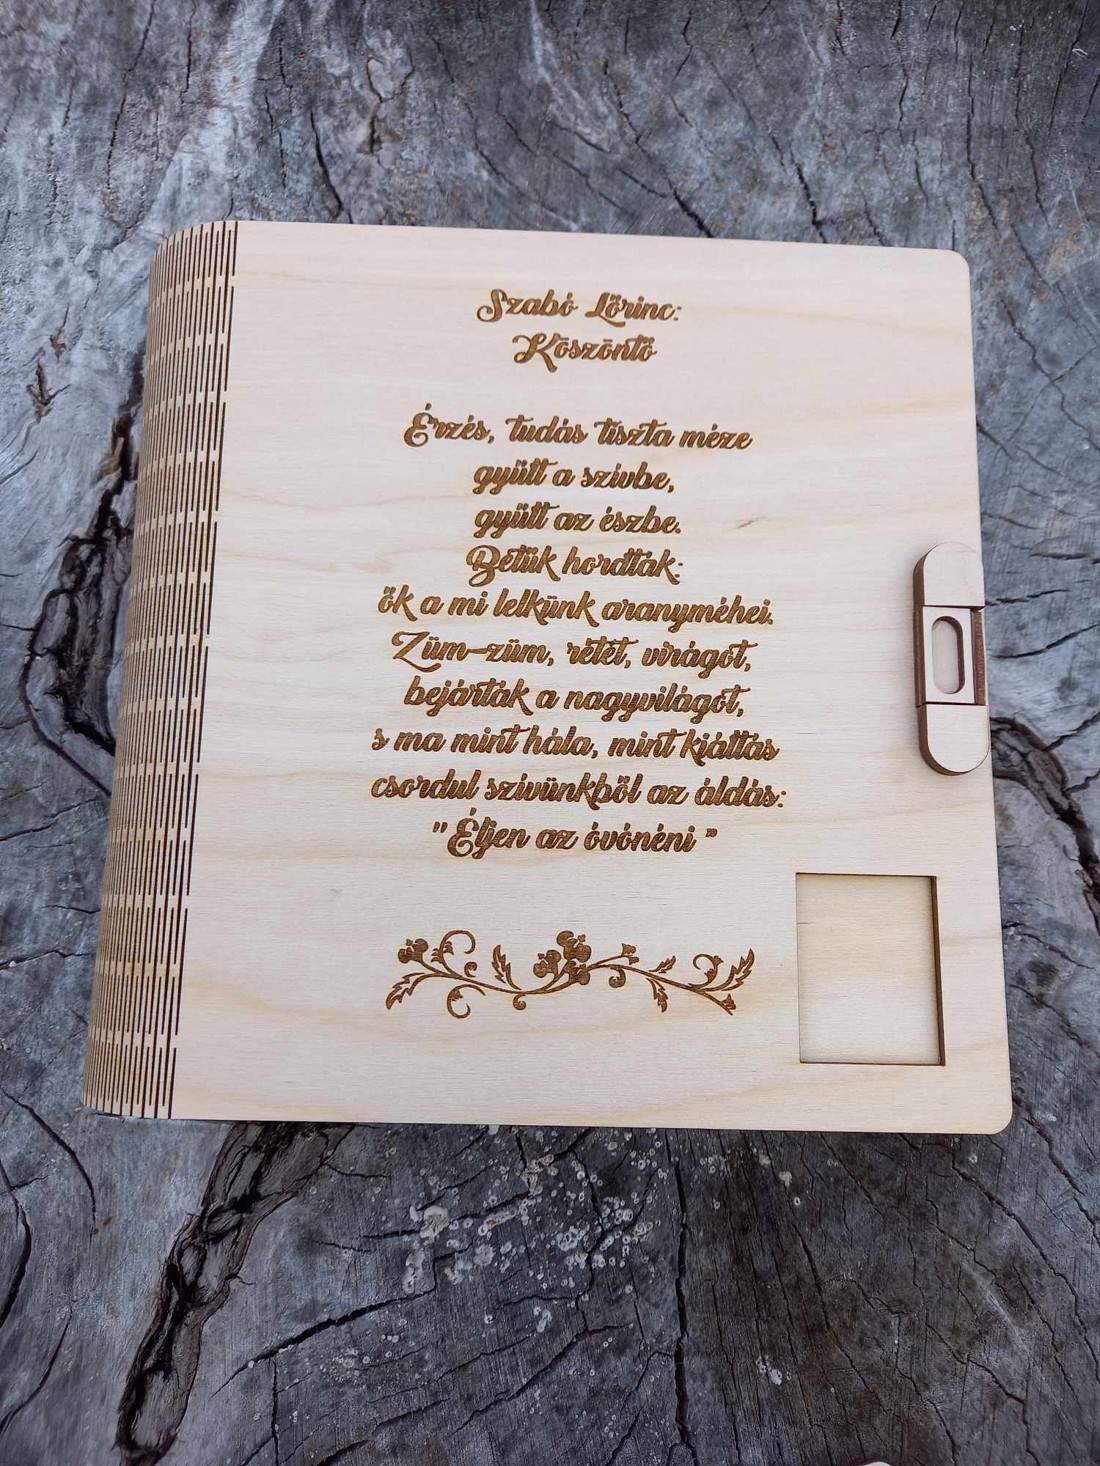 Szabó Lőrinc:
Köszöntő
Érzés, tudás tiszta méze
gyűlt a szívbe,
gyűlt az észbe.
Betűk hordták:
ők a mi lelkünk aranyméhei.
Züm-züm, rétet, virágot,
bejárták a nagyvilágot,
s ma mint hála, mint kiáltás
csordul szívünkből az áldás:
"Éljen az óvónéni "